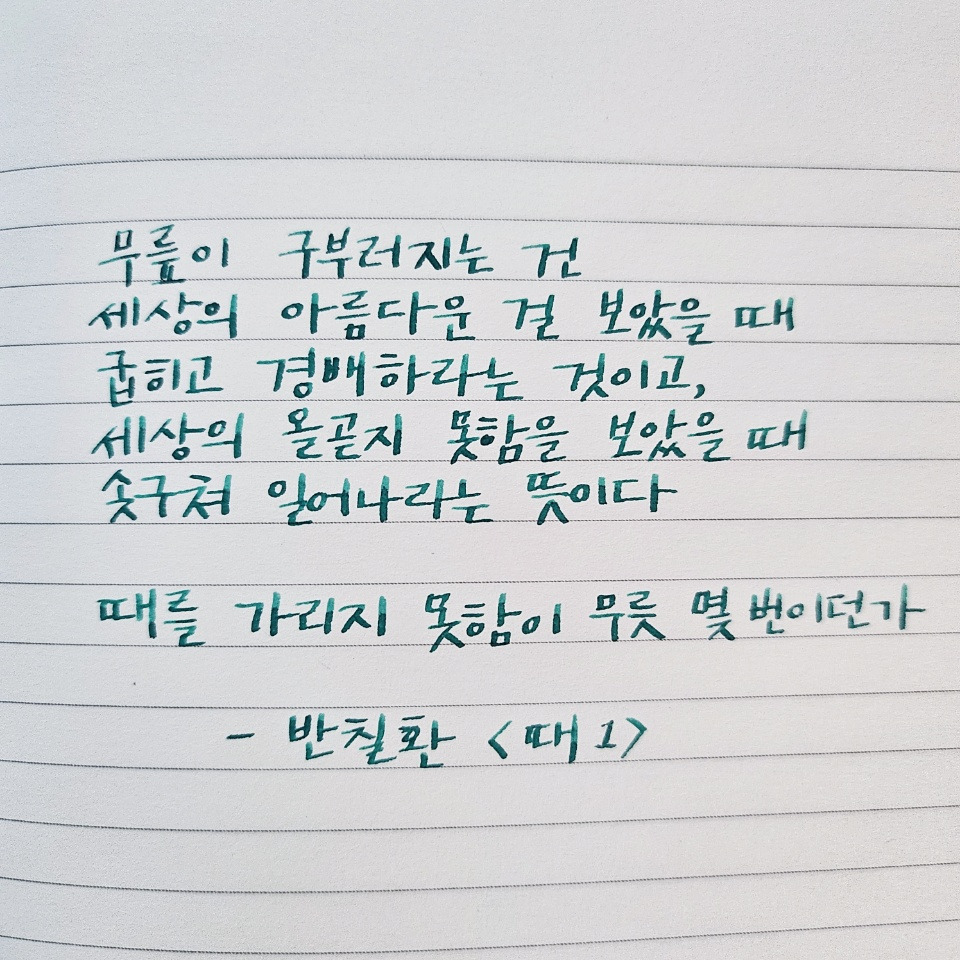 무릎이 구부러지는 건
세상의 아름다운 걸 보았을 때
굽히고 경배하라는 것이고,
세상의 올곧지 못함을 보았을 때
솟구쳐 일어나라는 뜻이다
때를 가리지 못함이 무릇 몇 번이던가
- 반칠환 <때 1>